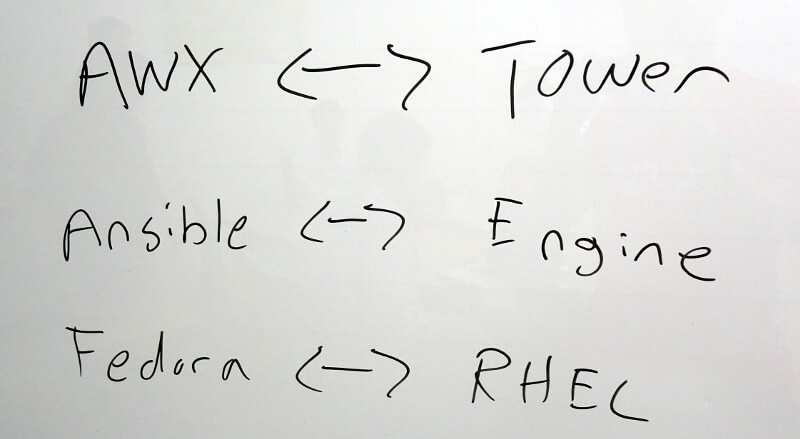 AWX <-> Tower
Ansible <-> Engine
Fedora <-> RHEL